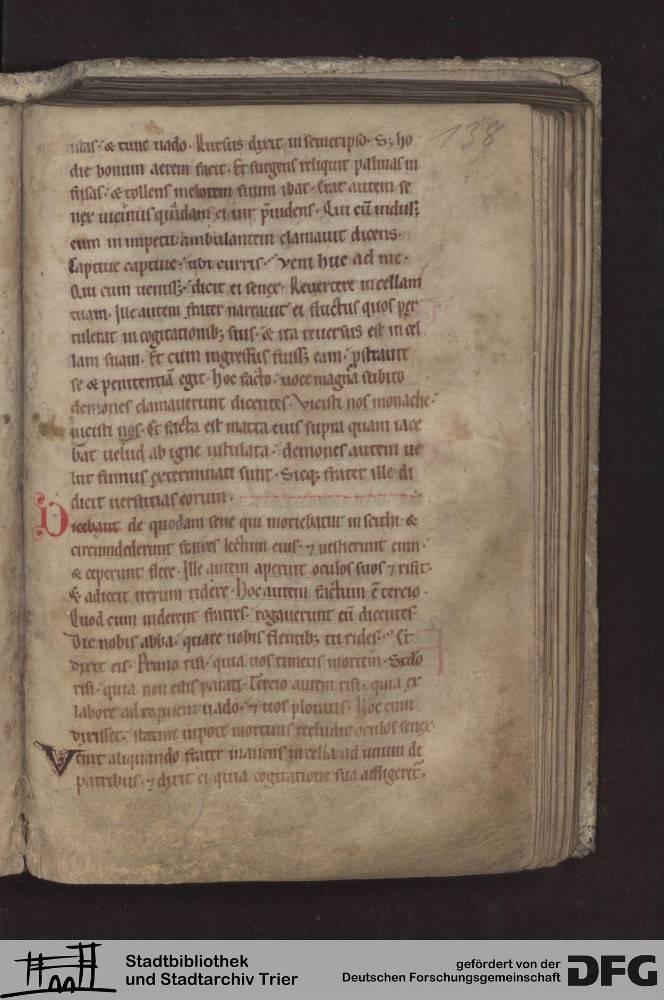 138
istas · & tunc uado · Rursus dixit in semetipso · S; ho
die bonum aerem facit · Et surgens reliquit palmas in
fusas · & tollens melotem suum ibat · Erat autem se
nex uicinus quidam ei uir puidens · Qui cū uidiss;
eum in impetu ambulantem clamauit dicens ·
Captiue captiue · ubi curris · veni huc ad me ·
Qui cum ueniss; · dicit ei senex · Reuertere in cellam
tuam · Ille autem frater narrauit ei fluctus quos per
tulerat in cogitationib; suis · & ita reuersus est in cel
lam suam · Et cum ingressus fuiss; eam · pstrauit
se & penitentiā egit · hoc facto · uoce magna subito
demones clamauerunt dicentes · vicisti nos monache ·
uicisti nos · Et facta est matta eius supra quam iace
bat uelud ab igne ustulata · demones autem ue
lut fumus exterminati sunt · Sicq; frater ille di
dicit uersutias eorum ·
Dicebant de quodam sene qui moriebatur in scithi · &
circumdederunt fratres lectum eius · & uestierunt eum ·
& ceperunt flere · Ille autem aperuit oculos suos & risit ·
& adiecit iterum ridere · Hoc autem factum ē tercio ·
Quod cum uiderent fratres · rogauerunt eū dicentes
Dic nobis abba · quare nobis flentib; tu rides · Et
dixit eis · Primo risi · quia uos timetis mortem · Scdo
risi · quia non estis parati · Tercio autem risi · quia ex
labore ad requiem uado · & uos ploratis · Hoc cum
dixisset · statim utpote mortuus recludit oculos senex ·
Venit aliquando frater manens in cella ad unum de
patribus · & dixit ei quia cogitatione sua affligeret ·
Stadtbibliothek
und Stadtarchiv Trier
gefördert von der
Deutschen Forschungsgemeinschaft
DFG